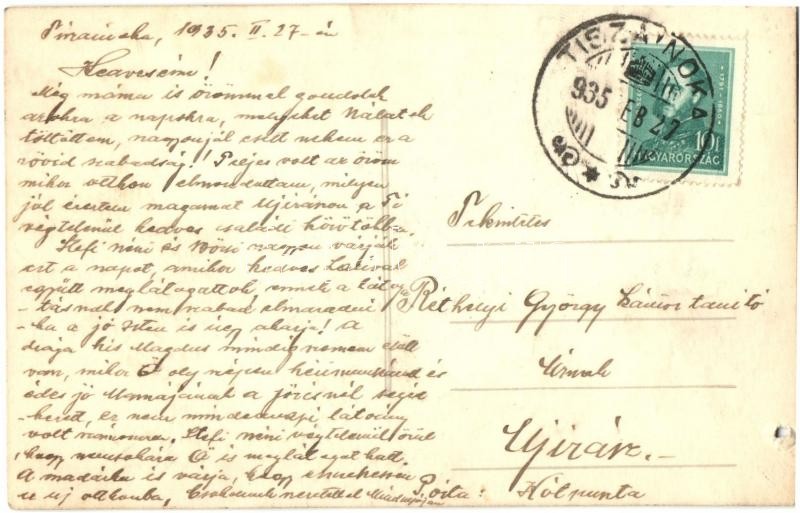 Tiszainoka, 1935. II. 27-én
Kedveseim!
Még máma is örömmel gondolok
azokra a napokra, melyeket Nálatok
töltöttem, nagyon jól esett nekem ez a
rövid szabadság! Teljes volt az öröm
mikor otthon elmondottam, milyen
jól éreztem magamat Ujiráson a Ti
végtelenül kedves családi körötökben.
Stefi néni és Bözsi nagyon várják
ezt a napot, amikor kedves
együtt meglátogattok ennek a látoga
-tásnak nem szabad elmaradni
-ha a jó Isten is úgy akarja! A
drága kis Magdus mindig nekem előtt
van, mikor Ő oly szépen
édes jó Mamájának a főzésnél segít
, ez nem mindennapi látvány
volt számomra. Stefi néni végtelenül örül
hogy nemsokára Ő is meglátogathat.
A madárka is várja, hogy
az új otthonba, Csókolunk szeretettel
TISZAINOKA
935 FEB 27
10f
MAGYARORSZÁG
Tekintetes
Réthelyi György kántor tanitó
Urnak
Ujirász.-
Posta: Kótpuszta